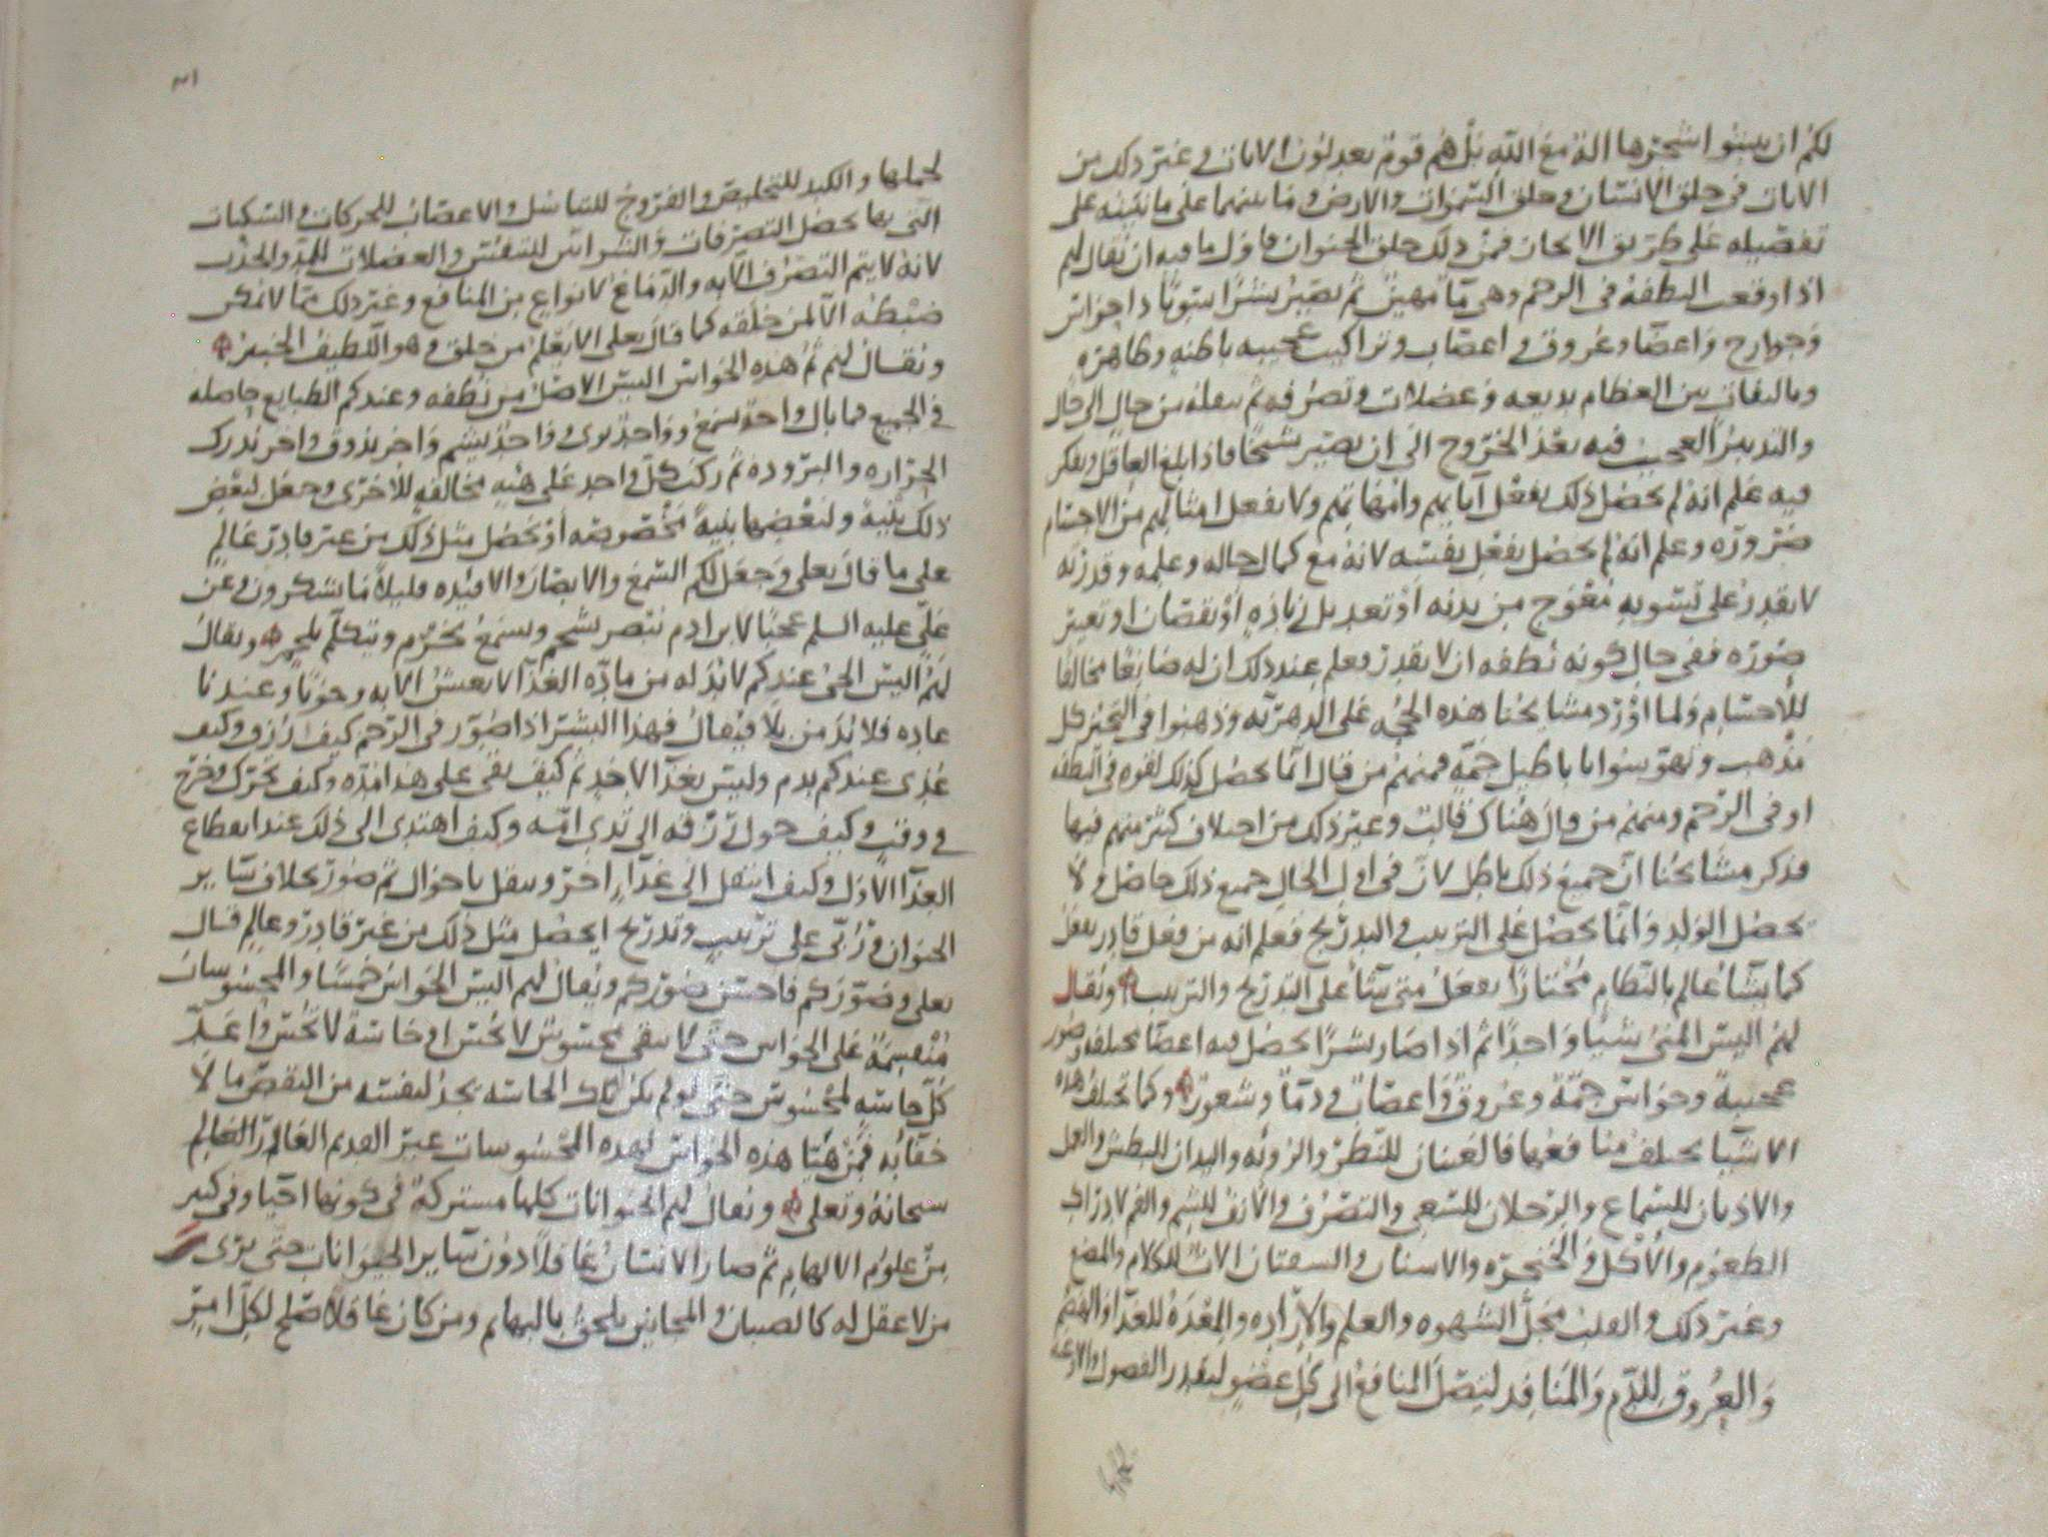 لكم ان تنبتوا شجرها اله مع الله بل هم قوم يعدلون الايات وغير ذلك من
الايات في خلق الانسان وخلق السموات والارض وما بينهما على ما نبينه على
تفصيله على طريق الايجاز فمن ذلك خلق الحيوان فاول ما فيه ان يقال لهم
اذا وقعت النطفة في الرحم وهي ماء مهين ثم يصير بشرًا سويًا ذا حواس
وجوارح واعضا وعروق واعصاب وتراكيب عجيبه باطنه وظاهره
وتاليفات بين العظام بديعه وعضلات وتصرفه ثم ينقله من حال الى حال
والتدبير العجيب فيه بعد الخروج الى ان يصير شيخًا فاذا بلغ العاقل وتفكر
فيه علم انه لم يحصل ذلك بفعل آبايهم وامهاتهم ولا بفعل امثالهم من الاجسام
ضرورة وعلم انه لم يحصل بفعل نفسه لانه مع كمال حاله وعلمه وقدرته
لا يقدر على تسويه معوج من بدنه او تعديل زيادة او نقصان او تغيير
صورة ففي حال كونه نطفه ان لا يقدر فعلم عند ذلك ان له صانعًا مخالفًا
للأجسام ولما اورد مشايخنا هذه الحجه على الدهرية وذهبوا في التحير كل
مذهب وتهوسوا باباطيل جمة فمنهم من قال انما يحصل كذلك لقوه في النطفه
او في الرحم ومنهم من قال هناك قالب وغير ذلك من اختلاف كثير منهم فيها
فذكر مشايخنا ان جميع ذلك باطل لان في اول الحال جميع ذلك حاصل ولا
يحصل الولد وانما يحصل على الترتيب والتدريج فعلم انه من فعل قادر يفعل
كما يشا عالم بالنظام مختارًا يفعل متى يشا على التدريج والترتيب ويقال
لهم اليس المني شيئا واحدًا ثم اذا صار بشرًا يحصل فيه اعضا مختلفه وصور
عجيبة وحواس جمة وعروق واعصاب ودمًا وشعور وكما تختلف هذه
الاشيا يختلف منافعها فالعينان للنظر والرؤيه واليدان للبطش والعمل
والاذنان للسماع والرجلان للسعي والتصرف والانف للشم والفم لادراك
الطعوم والأكل والحنجره والاسنان والشفتان الات للكلام والمضغ
وغير ذلك والقلب محل الشهوه والعلم والارادة والمعدة للغذا والهضم
والعروق للدم والمنافذ ليتصل المنافع الى كل عضو ليقدر الفصول والاوعيه
٣١
لحملها والكبد للتخليص والفروج للتناسل والاعصاب للحركات والسكنات
التي بها يحصل التصرفات والشراس للتنفس والعضلات للمد والجذب
لانه لا يتم التصرف الا به والدماغ لانواع من المنافع وغير ذلك مما لا يمكن
ضبطه الا لمن خلقه كما قال تعلى الا يعلم من خلق وهو اللطيف الخبير
ويقال لهم ثم هذه الحواس اليس الاصل من نطفه وعندكم الطبايع حاصله
في الجميع فما بال واحد يسمع وواحد يرى وواحد يشم واخر يذوق واخر يدرك
الحراره والبرودة ثم ركب كل واحد على هيه مخالفه للأخرى وجعل لبعض
ذلك بلية ولبعضها بلية مخصوصه او يحصل مثل ذلك من غير قادر عالم
على ما قال تعلى وجعل لكم السمع والابصار والافئده قليلا ما تشكرون وعن
علي عليه السلم عجبًا لابن ادم ينصر بشحم ويسمع بخرم ويتكلم بلحم ويقال
لهم اليس الحي عندكم لا بد له من مادة الغذا لا يعيش الا به وجوبًا وعندنا
عادة فلا بد من بلا فيقال فهذا البشر اذا صور في الرحم كيف رزق وكيف
غذي عندكم بدم وليس بغذا لاحد ثم كيف بقي على هذا مدة وكيف تحرك وخرج
في وقت وكيف حول رزقه الى ثدي امه وكيف اهتدى الى ذلك عند انقطاع
الغذا الاول وكيف انتقل الى غذاء اخر وينقل باحوال ثم صور بخلاف ساير
الحيوان وربى على ترتيب وتدريج ايحصل مثل ذلك من غير قادر وعالم قال
تعلى وصوركم فاحسن صوركم ويقال لهم اليس الحواس خمسًا والمحسوسات
منقسمة على الحواس حتى لا يبقى محسوس لا يحس او حاسة لا تحس واعد
كل حاسه لمحسوس حتى لو لم يكن تلك الحاسه يجد لنفسه من النقص ما لا
خفا به فمن هيا هذه الحواس لهذه المحسوسات غير القديم العالم
سبحانه وتعلى ويقال لهم الحيوانات كلها مشتركة في كونها احيا وفي كثير
من علوم الالهام ثم صار الانسان عاقلًا دون ساير الحيوانات حتى يرى
من لا عقل له كالصبيان والمجانين يلحق بالبهايم ومن كان عاقلا صلح لكل امر